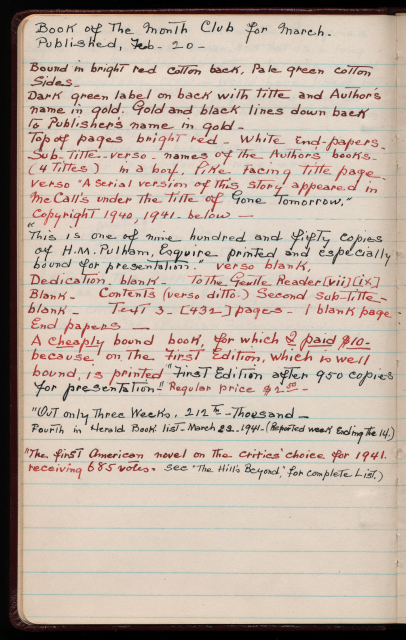 Book of The Month Club for March.
Published, Feb - 20 -
Bound in bright red cotton back, Pale green cotton
Sides -
Dark green label on back with title and Author's
name in gold. Gold and black lines down back
To Publisher's name in gold -
Top of pages bright red - White End-papers -
Sub-Title - verso - names of the Authors books -
(4 Titles) in a box, Pike Facing title page
verso "A serial version of this story appeared in
McCall's under the title of Gone Tomorrow,"
Copyright 1940, 1941 - below —
"This is one of nine hundred and fifty copies
of H.M. Pulham, Esquire printed and especially
bound for presentation." verso blank,
Dedication. blank - To The Gentle Reader [vii] [ix]
Blank - Contents (verso ditto -) Second sub-title -
blank - Text 3 - [432] pages - 1 blank page
End papers —
A cheaply bound book, for which I paid $10 -
because on The First Edition, which is well
bound, is printed "First Edition after 950 copies
for presentation" Regular price $2.50 -
"Out only Three Weeks, 212 Th - Thousand —
Fourth in Herald Book list - March 23 - 1941 - (Reported week Ending the 14.)
"The first American novel on The critics' choice for 1941.
receiving 685 votes. see "The Hill's Beyond," for complete List.)